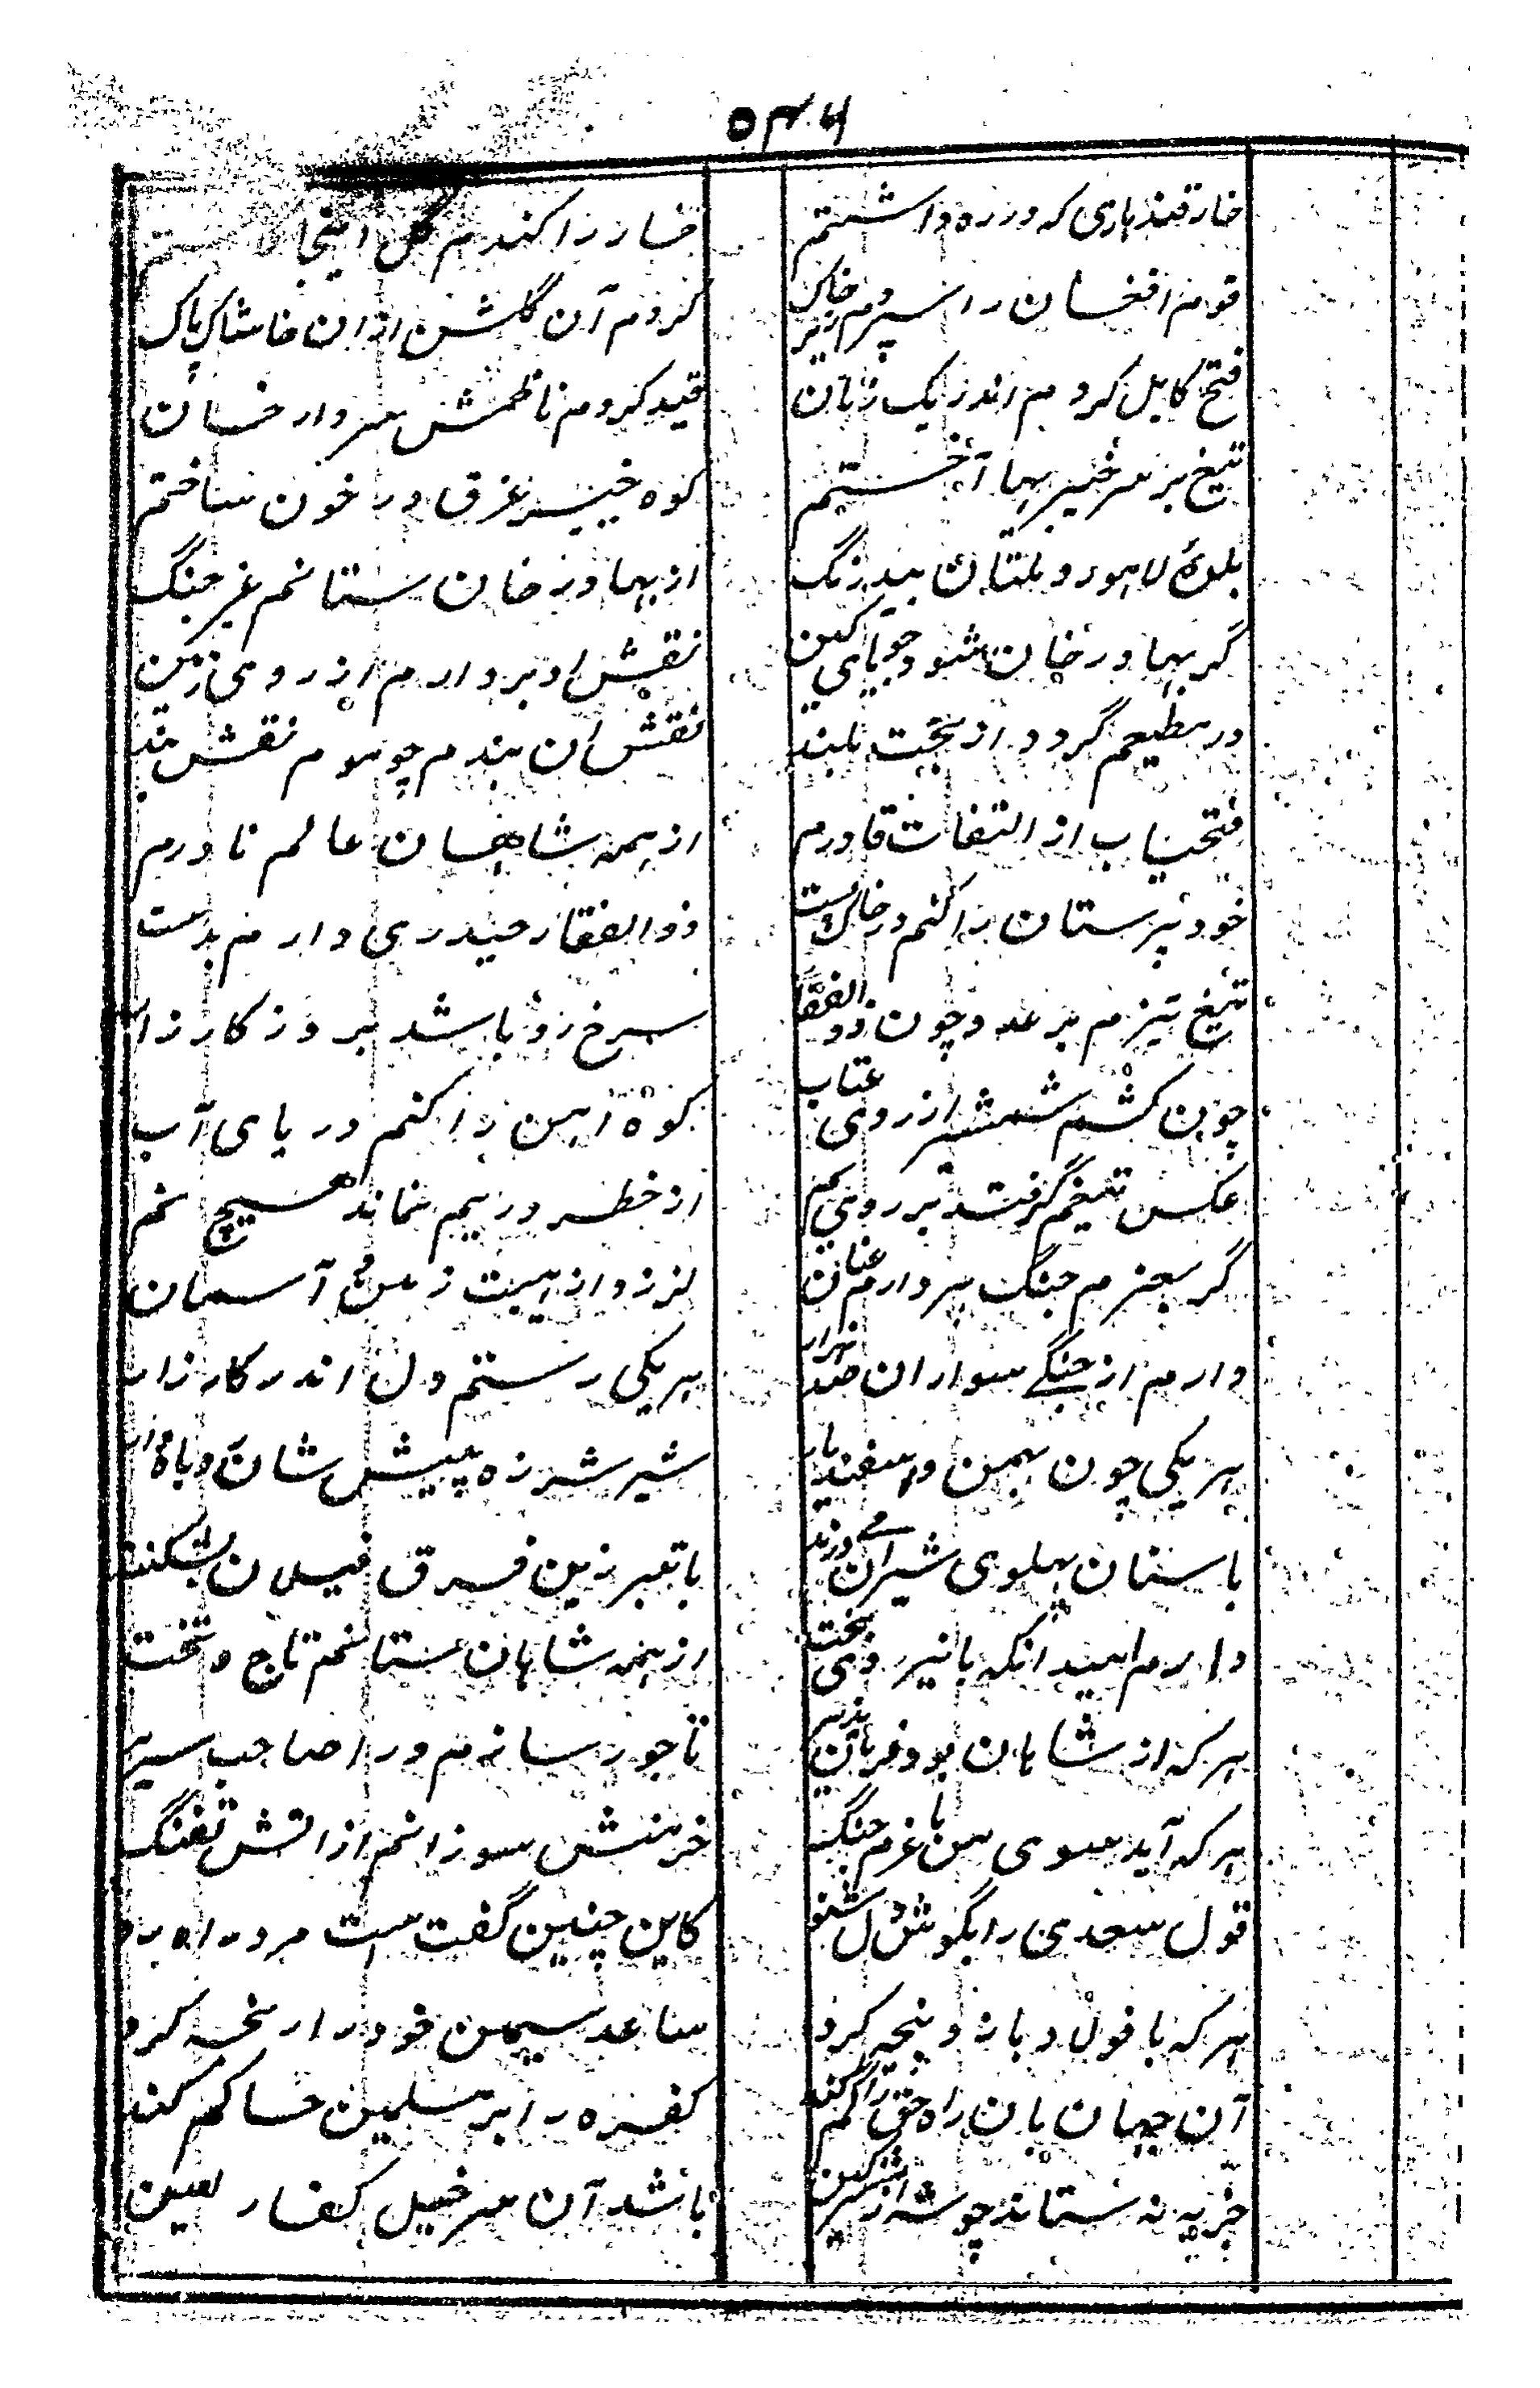 ۵۳۶
خار قندهاری که در ره داشتم خار را کندم گل اینجا
قوم افغان را سپردم زیر خاک کردم آن گلشن ازان خاشاک پاک
فتح کابل کردم اندر یک زمان قید کردم ناظمش سردار خان
تیغ بر سر خیبریها آختم کوه خیبر غرق در خون ساختم
بلوهٔ لاهور و ملتان بیدرنگ از بهادر خان ستانم غیر جنگ
گر بهادر خان شود جویای کین نقش او بردارم از روی زمین
ور مطیعم گردد از بخت بلند نقش ان بندم چو موم نقش بند
فتحیاب از التفات قادرم از همه شاهان عالم نادرم
خود پرستان را کنم در خاک پست ذوالفقار حیدری دارم بدست
تیغ تیزم بر عدو چون ذوالفقار سرخ رو باشد بروز کارزار
چون کشم شمشیر از روی عتاب کوه آهن را کنم دریای آب
عکس تیغم گر فتد بر روی یم از خطر در یم نماند هیچ نم
گر بعزم جنگ بردارم عنان لرزد از هیبت زمین و آسمان
دارم از جنگی سواران صد هزار هر یکی رستم دل اندر کارزار
هر یکی چون بهمن و اسفندیار شیر شرزه پیش شان روباه وار
با سنان پهلوی شیران می درند با تبر زین فرق فیلان بشکنند
دارم امید انکه با نیروی بخت از همه شاهان ستانم تاج و تخت
هر که از شاهان بود فرمان پذیر تا جورسانم ورا صاحب سریر
هر که آید سوی من با عزم جنگ خرمنش سوزانم از اتش تفنگ
قول سعدی را بگوش دل شنو کاین چنین گفت ست مرد راه رو
هر که با فولاد بازو پنجه کرد ساعد سیمین خود را رنجه کرد
آن جهان بان راه حق را گم کند کفره را بر مسلمین حاکم کند
جزیه نه ستاند چو شه از مشرکین باشد آن سر خیل کفار لعین